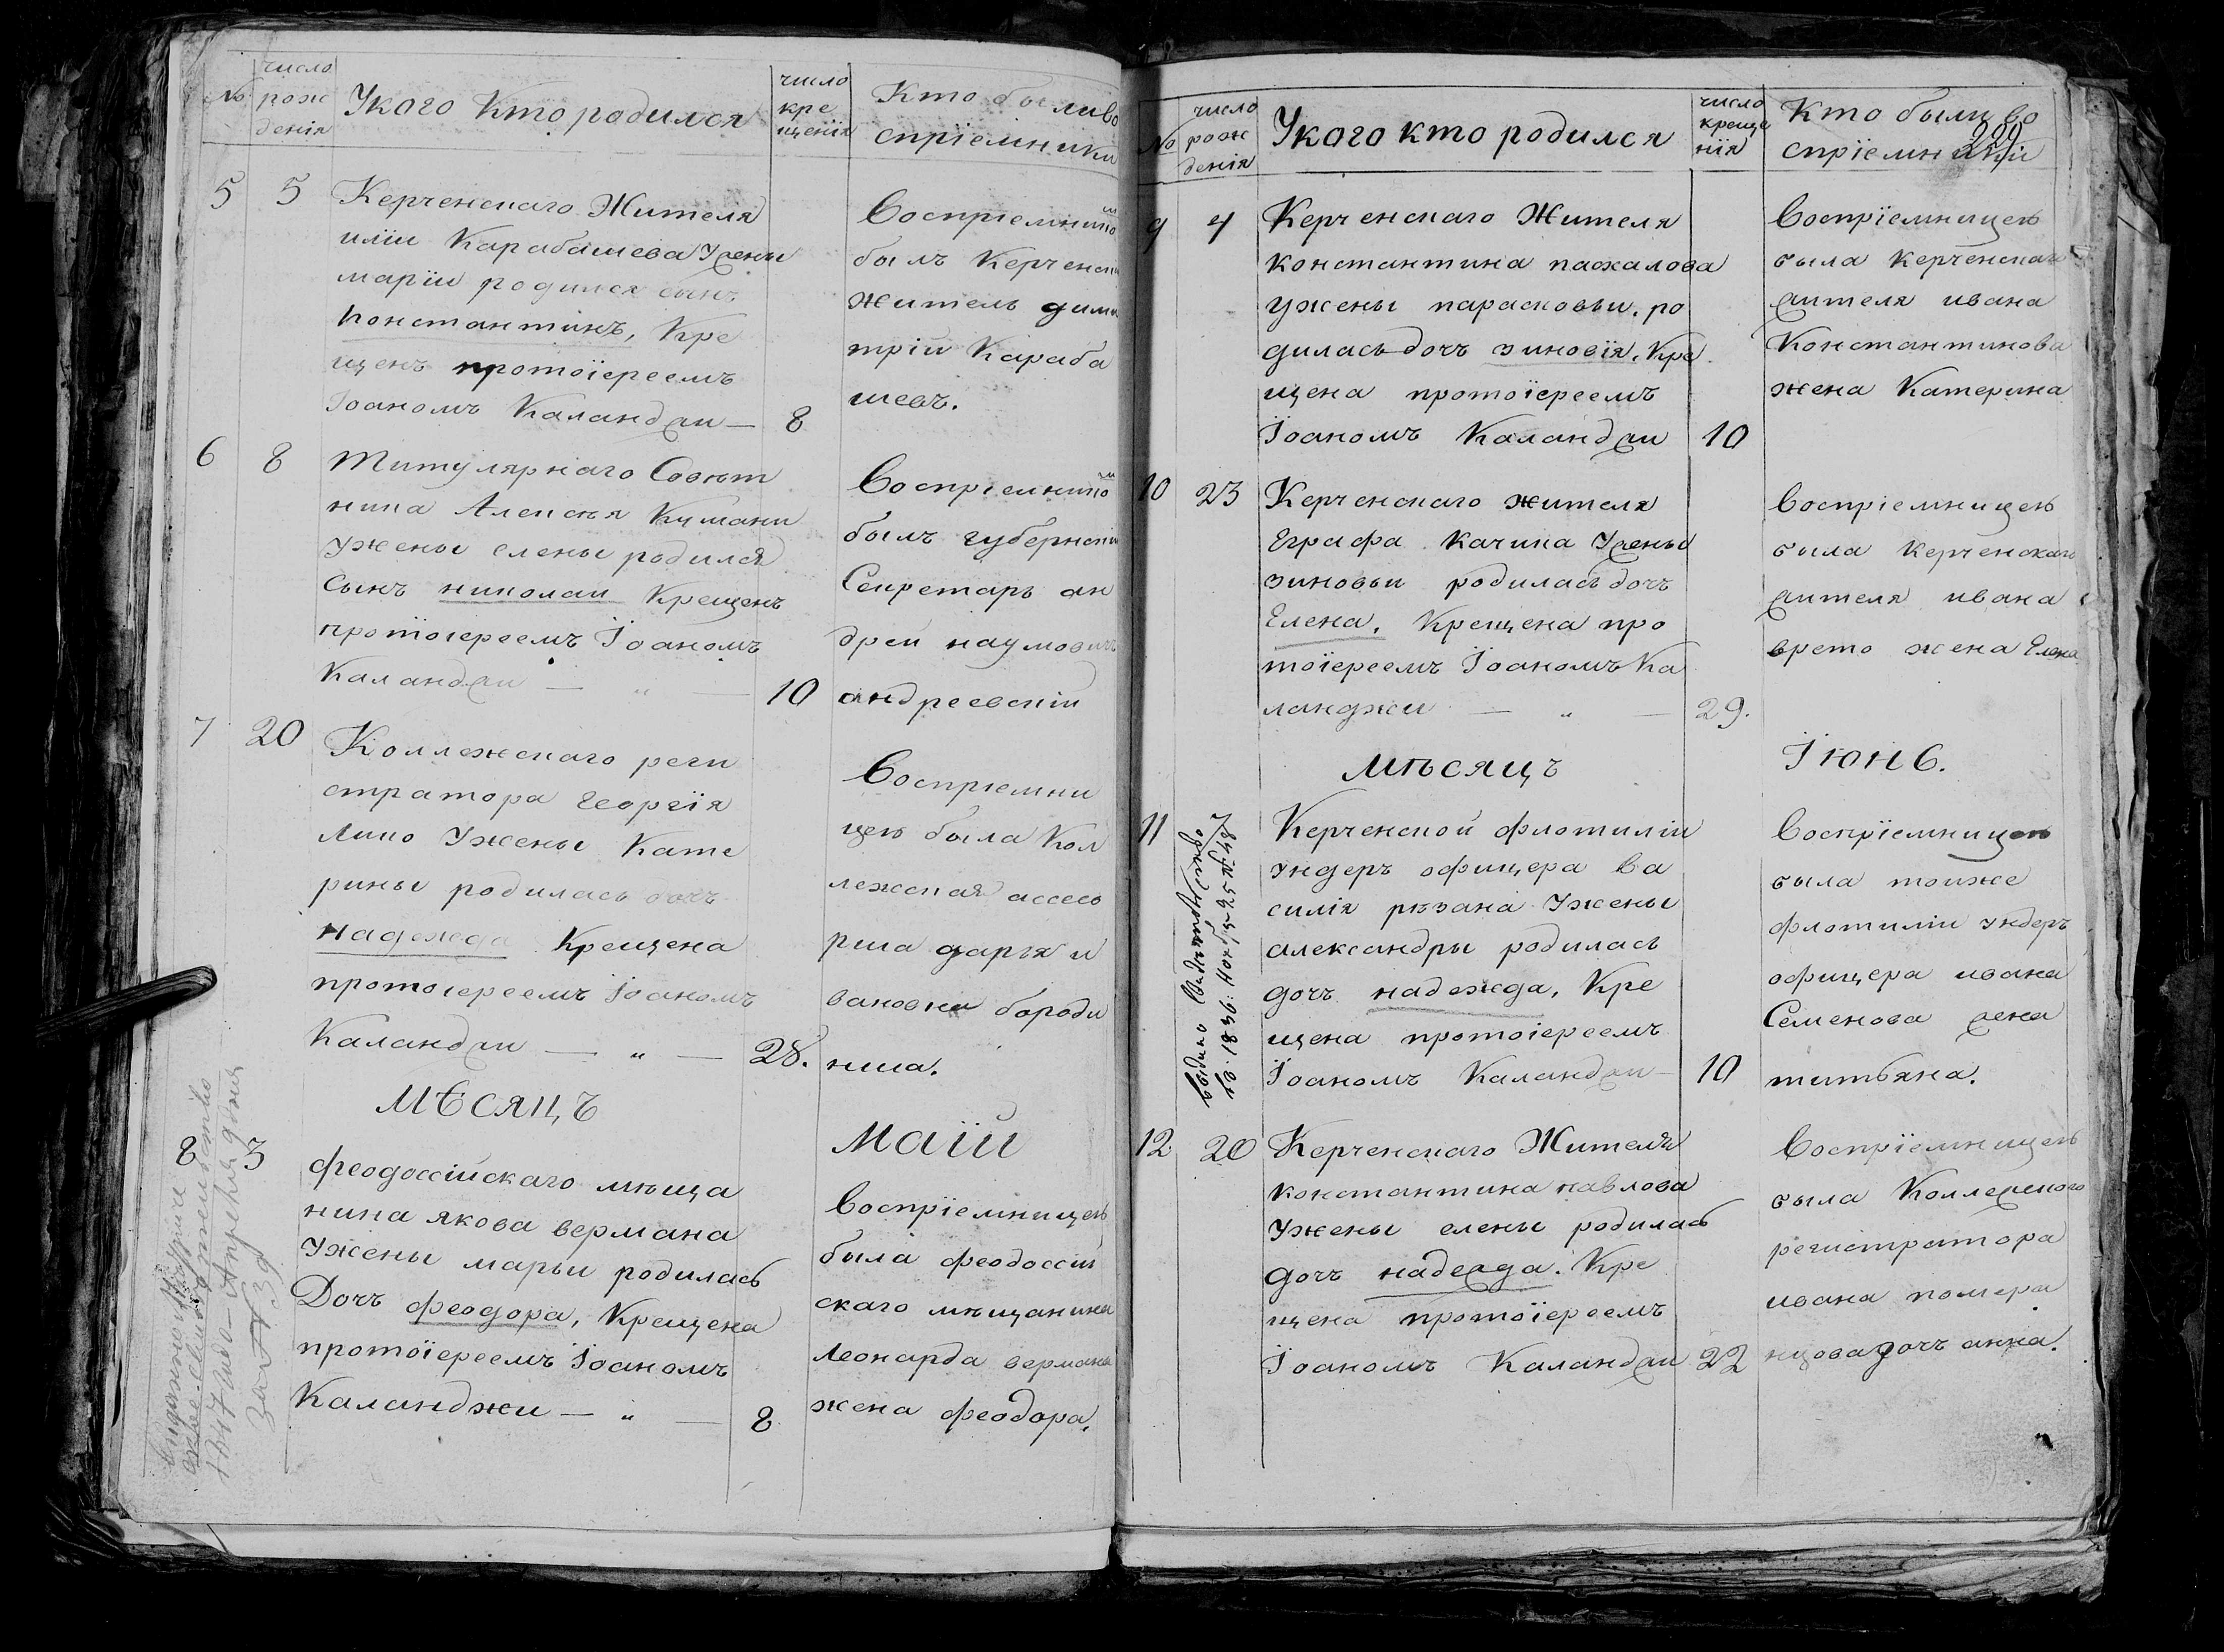 №
число
рож
денія
Укого Кто родился
число
кре
щенія
Кто были во
спріемники
5
5
Керченскаго Жителя
иліи Карабашева Ужены
маріи родился сынъ
константинъ, Кре
щенъ протоіереемъ
Іоаномъ Каланджи —
8
Воспріемником
былъ Керченскій
житель дими
трій Караба
шевъ.
6
8
Титулярнаго Совѣт
ника Алексѣя Кумани
Ужены елены родился
Сынъ николаи Крещенъ
протоіереемъ Іоаномъ
Каланджи — „ —
10
Воспріемником
былъ губернскій
Секретарь ан
дреи наумовичъ
андреевскій
7
20
Коллежскаго реги
стратора Георгія
Лино Ужены Кате
рины родилась дочъ
надежда Крещена
протоіереемъ Іоаномъ
Каланджи — „ —
28.
Воспріемни
цею была Кол
лежская ассесо
рша дарья и
вановна бороди
нша.
Мѣсяцъ
Маій
8
3
феодоссійскаго мѣща
нина якова вермана
Ужены марьи родилась
Дочъ феодора, Крещена
протоіереемъ Іоаномъ
Каланджи — „ —
8
Воспріемницею
была феодоссій
скаго мѣщанина
Леонарда вермана
жена феодора.
за № 39
№
число
рож
денія
Укого кто родился
число
креще
нія
Кто были во
спріемники
200
9
4
Керченскаго Жителя
константина пасхалова
ужены парасковьи. ро
дилась дочъ зиновія. Кре
щена протоіереемъ
Іоаномъ Каланджи
10
Воспріемницею
была Керченскаго
жителя ивана
Константинова
жена Катерина
10
23
Керченскаго жителя
Еграфа Качика Ужены
зиновьи родилась дочъ
Елена. Крещена про
тоіереемъ Іоаномъ Ка
ланджи — „ —
29.
Воспріемницею
была Керченскаго
жителя ивана
врето жена Елена
мѣсяцъ
Іюнь.
11
7
Керченской флотиліи
ундеръ офицера ва
силія рѣзана Ужены
александры родилась
дочъ надежда, Кре
щена протоіереемъ
Іоаномъ Каланджи —
10
Воспріемницею
была тоиже
флотиліи ундеръ
офицера ивана
Семенова жена
титьяна.
Видано Свидѣтельство
1836: Нояб: 25 № 48
12
20
Керченскаго Жителя
константина павлова
Ужены елены родилась
дочъ надежда. Кре
щена протоіереемъ
Іоаномъ Каланджи
22
Воспріемницею
была Коллежского
регистратора
ивана помера
нцова дочъ анна.